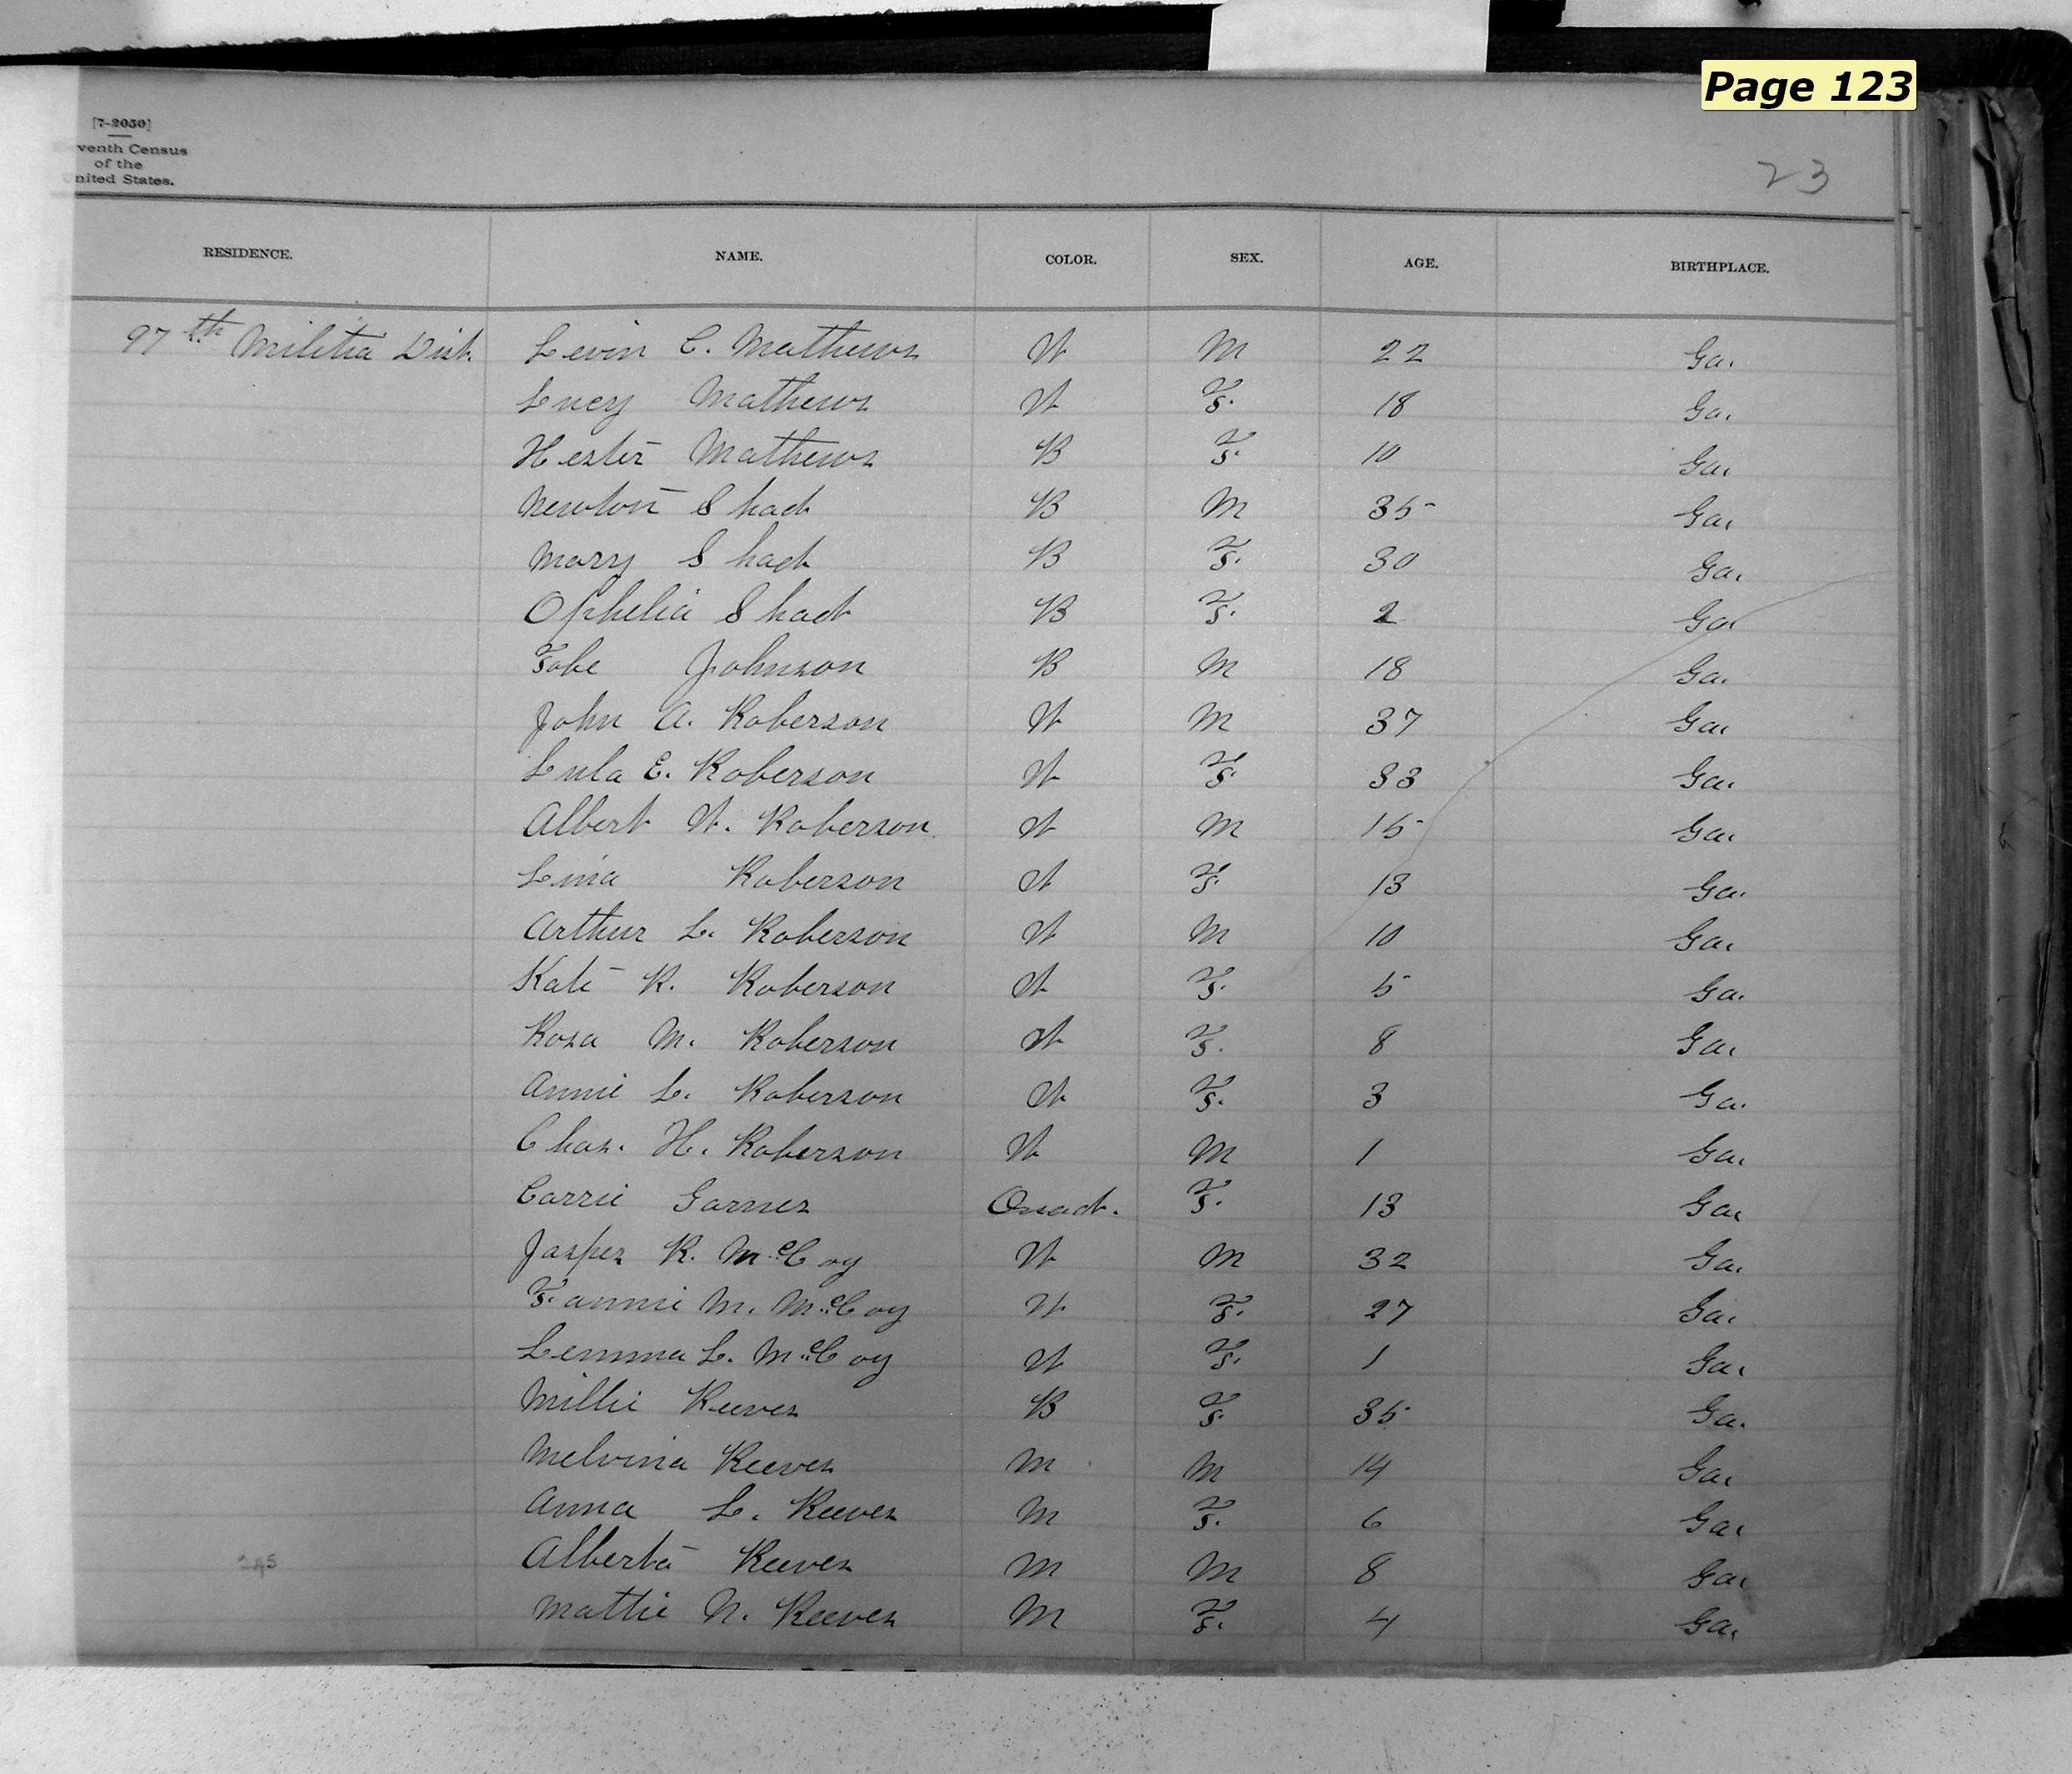 Page 123
[7-2050]
venth Census
of the
nited States.
23
RESIDENCE. NAME. COLOR. SEX. AGE. BIRTHPLACE.
97th Militia Dist. Levin C. Mathews W M 22 Ga.
Lucy Mathews W F. 18 Ga.
Hester Mathews B F. 10 Ga.
Newton Shad B M 35 Ga.
Mary Shad B F. 30 Ga.
Ophelia Shad B F. 2 Ga.
Tobe Johnson B M 18 Ga.
John A. Roberson W M 37 Ga.
Lula E. Roberson W F 33 Ga.
Albert W. Roberson W M 15 Ga.
Lina Roberson W F. 13 Ga.
Arthur L. Roberson W M 10 Ga.
Kate R. Roberson W F. 5 Ga.
Rosa M. Roberson W F. 8 Ga.
Annie L. Roberson W F. 3 Ga.
Chas. H. Roberson W M 1 Ga.
Carrie Garner Quad. F. 13 Ga.
Jasper R. McCoy W M 32 Ga.
Fannie M. McCoy W F. 27 Ga.
Lemma L. McCoy W F. 1 Ga.
Millie Reeves B F. 35 Ga.
Melvina Reeves M M 14 Ga.
Anna L. Reeves M F. 6 Ga.
245 Alberta Reeves M M 8 Ga.
Mattie N. Reeves M F. 4 Ga.